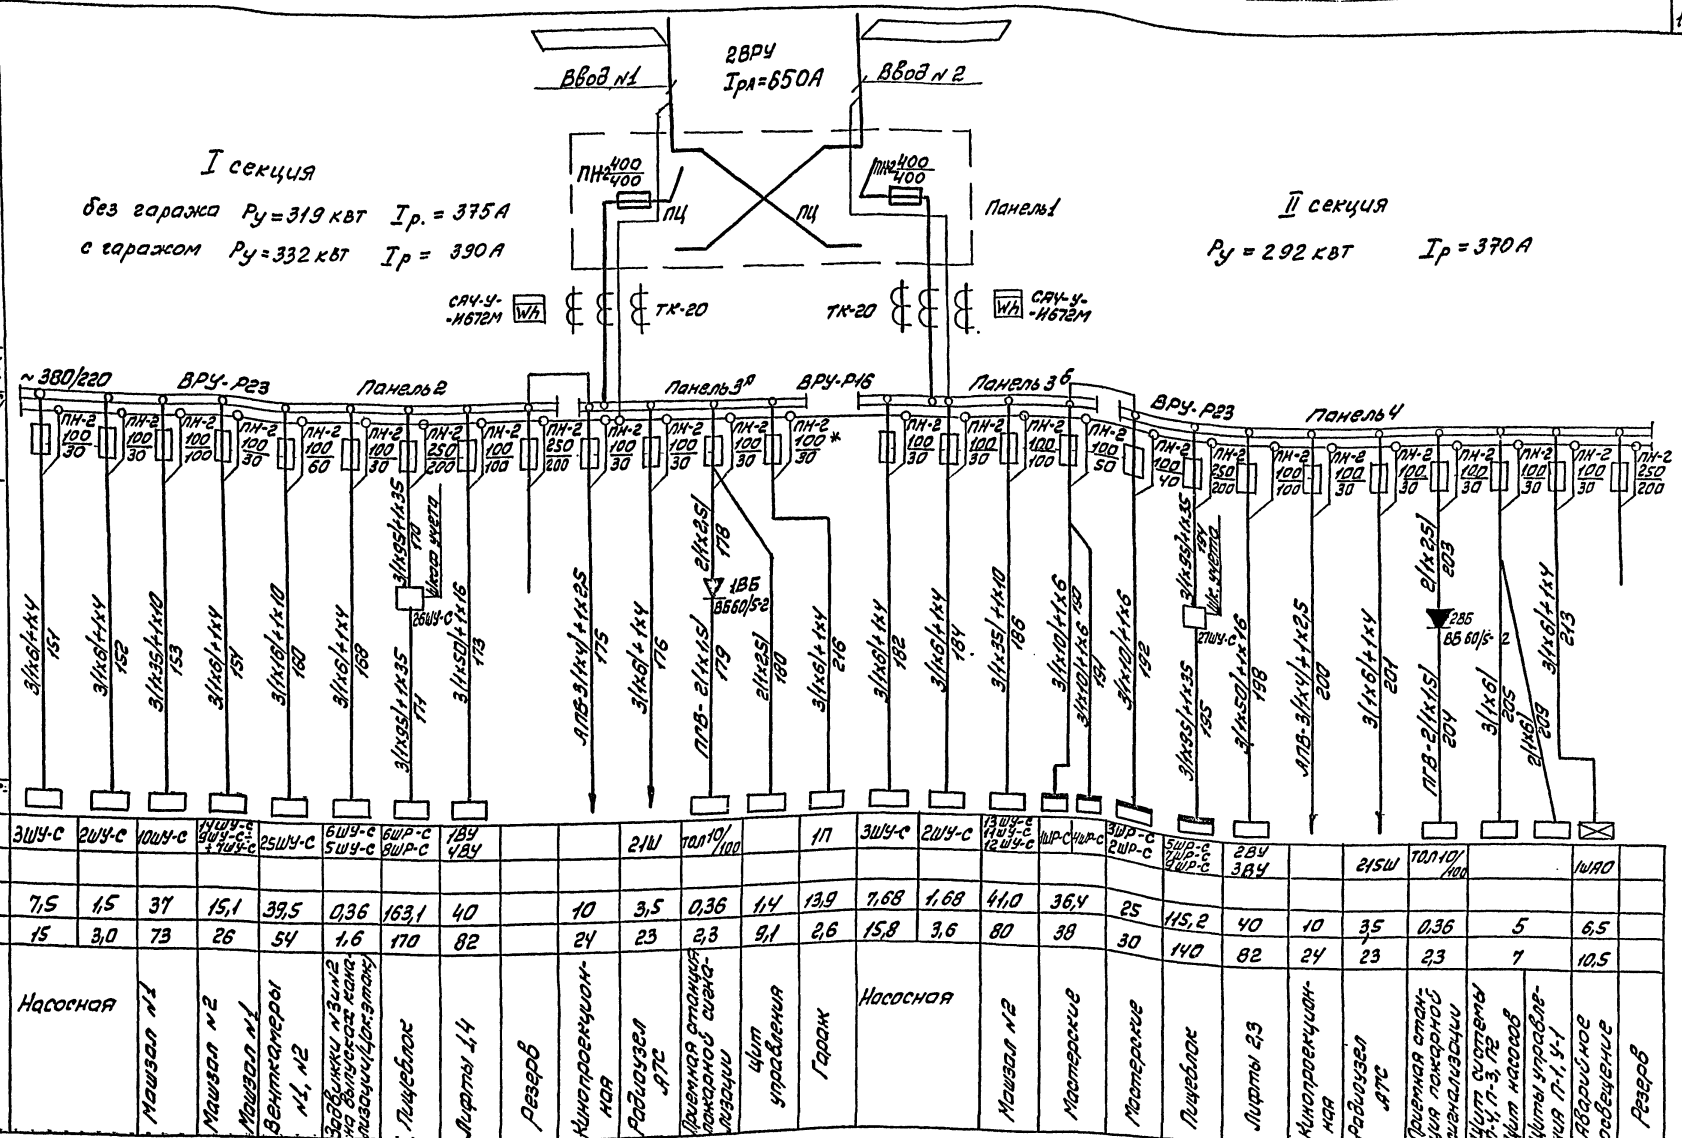 2ВРУ
Iрл=650А
Ввод N1
Ввод N2
I секция
без гаража Ру=319 квт Iр.=375А
с гаражом Ру=332 квт Iр= 390А
ПН2 400/400
ПН2 400/400
ПЦ
ПЦ
Панель1
II секция
Ру=292 квт Iр=370А
САЧ-У-
-И672М
Wh
ТК-20
ТК-20
Wh
САЧ-У-
-И672М
~380/220
ВРУ-Р23
Панель2
Панель3А
ВРУ-Р16
Панель3б
ВРУ-Р23
Панель4
ПН-2 100/30
ПН-2 100/30
ПН-2 100/100
ПН-2 100/30
ПН-2 100/60
ПН-2 100/30
ПН-2 250/200
ПН-2 100/100
ПН-2 250/200
ПН-2 100/30
ПН-2 100/30
ПН-2 100/30
ПН-2 100/30*
ПН-2 100/30
ПН-2 100/30
ПН-2 100/100
ПН-2 100/50
ПН-2 100/40
ПН-2 250/200
ПН-2 100/100
ПН-2 100/30
ПН-2 100/30
ПН-2 100/30
ПН-2 100/30
ПН-2 100/30
ПН-2 250/200
3(1х6)+1х4 151
3(1х6)+1х4 152
3(1х35)+1х10 153
3(1х6)+1х4 151
3(1х16)+1х10 160
3(1х6)+1х4 168
3(1х95)+1х35 170
Шкаф учета
26ШУ-С
3(1х95)+1х35 171
3(1х50)+1х16 173
АПВ-3(1х4)+1х2,5 175
3(1х6)+1х4 176
2(1х2,5) 178
1ВБ
ВБ60/5-2
ПГВ-2(1х1,5) 179
2(1х2,5) 180
3(1х6)+1х4 216
3(1х6)+1х4 182
3(1х6)+1х4 184
3(1х35)+1х10 186
3(1х10)+1х6 190
3(1х10)+1х6 191
3(1х10)+1х6 192
3(1х95)+1х35 194
Шк. учета
27ШУ-С
3(1х95)+1х35 195
3(1х50)+1х16 198
АПВ-3(1х4)+1х2,5 200
3(1х6)+1х4 201
2(1х2,5) 203
2ВБ
ВБ 60/5-2
ПГВ-2(1х1,5) 204
3(1х6) 205
2(1х6) 209
3(1х6)+1х4 213
3ШУ-С 2ШУ-С 10ШУ-С 14ШУ-С 9ШУ-С +7ШУ-С 25ШУ-С 6ШУ-С 5ШУ-С 6ШР-С 8ШР-С 1ВУ 4ВУ 21Ш ТОЛ10/100 1П 3ШУ-С 2ШУ-С 13ШУ-С 11ШУ-С 12ШУ-С 1ШР-С 4ШР-С 3ШР-С 2ШР-С 5ШР-С 7ШР-С 9ШР-С 2ВУ 3ВУ 215Ш ТОЛ10/100 1ЩАО
7,5 1,5 37 15,1 39,5 0,36 163,1 40 10 3,5 0,36 1,4 13,9 7,68 1,68 41,0 36,4 25 115,2 40 10 3,5 0,36 5 6,5
15 3,0 73 26 54 1,6 170 82 24 23 2,3 9,1 2,6 15,8 3,6 80 38 30 140 82 24 23 2,3 7 10,5
Насосная
Машзал N1
Машзал N2
Машзал N1
Венткамеры
N1, N2
Задвижки N3 и N2
на выпусках кана-
лизации(цок.этаж)
Пищеблок
Лифты 1,4
Резерв
Кинопроекцион-
ная
Радиоузел
АТС
Приемная станция
пожарной сигна-
лизации
Щит
управления
Гараж
Насосная
Машзал N2
Мастерские
Мастерские
Пищеблок
Лифты 2,3
Кинопроекцион-
ная
Радиоузел
АТС
Приемная стан-
ция пожарной
сигнализации
Щит системы
П-4, П-3, П2
Щит насосов
Щиты управле-
ния П-1, У-1
Аварийное
освещение
Резерв